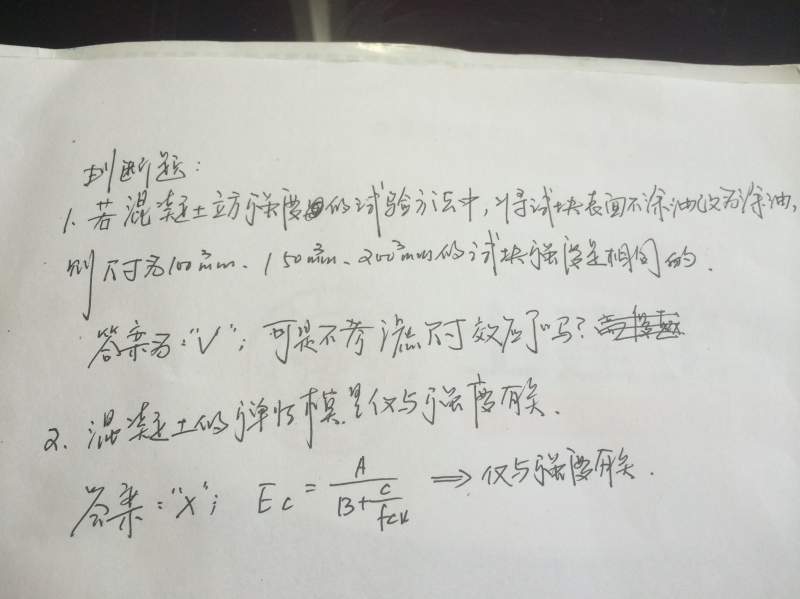 判断题:
1. 若混凝土立方强度的试验方法中,将试块表面不涂油改为涂油,
则尺寸为100³mm、150³mm、200³mm的试块强度是相同的.
答案为:"√"; 可是不考虑尺寸效应了吗?
2. 混凝土的弹性模量仅与强度有关.
答案:"×"; Ec = A / (B + C/fcu) ⇒ 仅与强度有关.